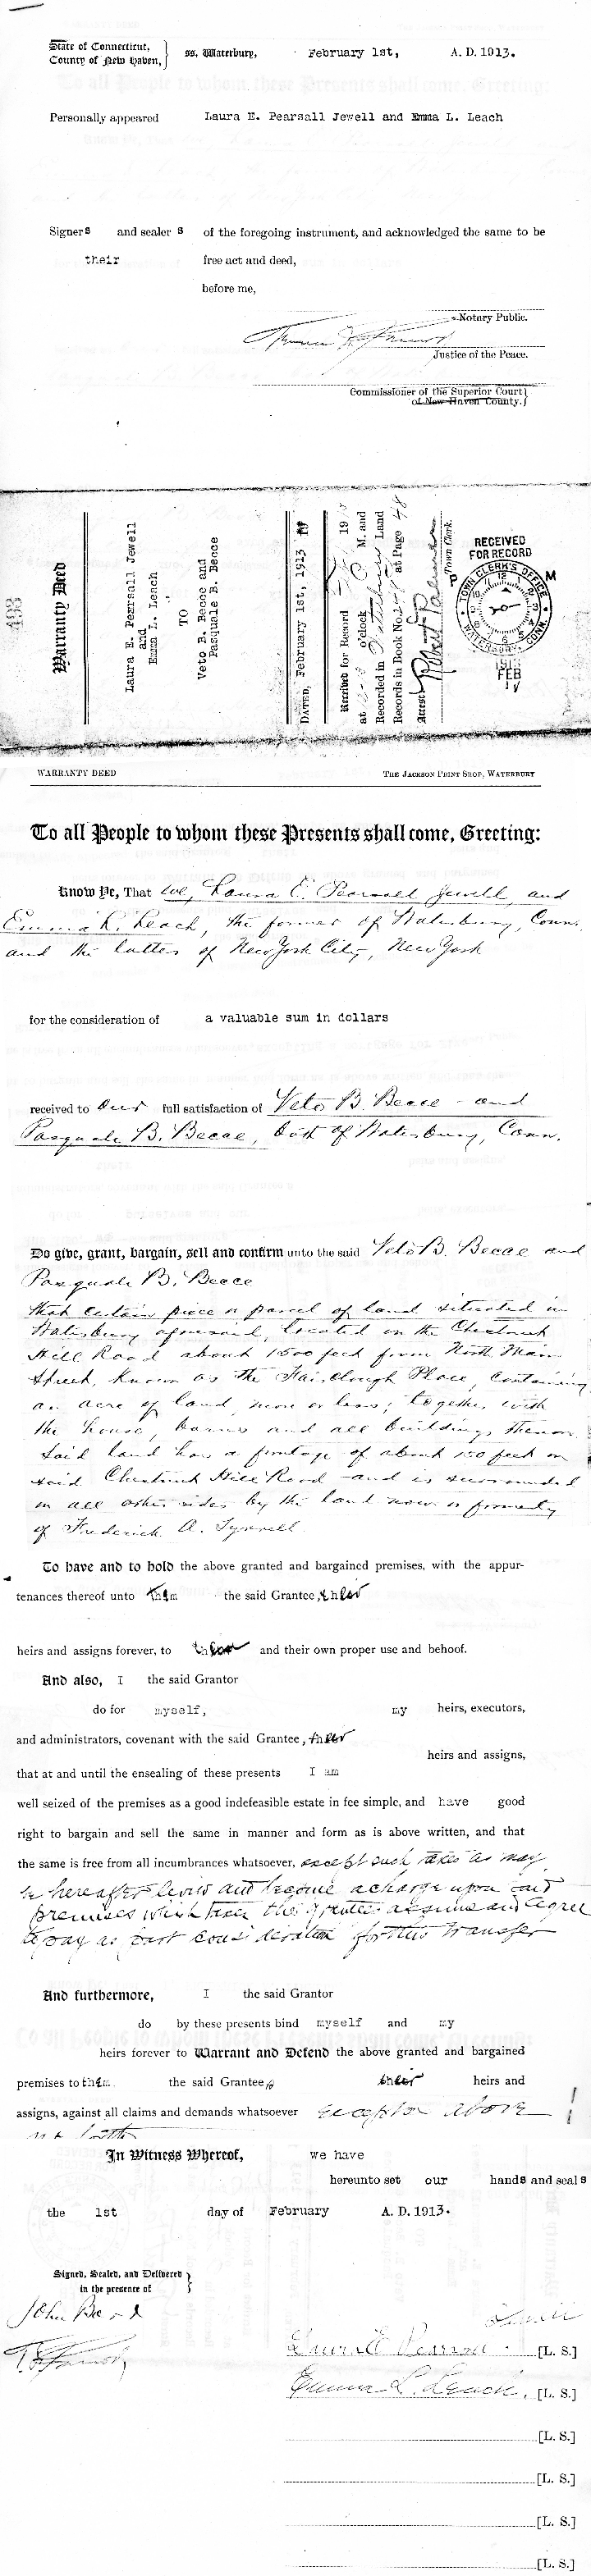 State of Connecticut, } ss. Waterbury, February 1st, A. D. 1913.
County of New Haven,
Personally appeared Laura E. Pearsall Jewell and Emma L. Leach
Signers and sealer s of the foregoing instrument, and acknowledged the same to be
their free act and deed,
before me,
Notary Public.
Justice of the Peace.
Commissioner of the Superior Court }
of New Haven County.
493
Warranty Deed
Laura E. Pearsall Jewell
and
Emma L. Leach
TO
Veto B. Becce and
Pasquale B. Bence
DATED, February 1st, 1913
Received for Record 19
at o'clock M. and
Recorded in Waterbury Land
Records in Book No. at Page 48
Attest, Robert Palmer
Town Clerk.
RECEIVED
FOR RECORD
P M
TOWN CLERK'S OFFICE
WATERBURY, CONN.
1913
FEB
WARRANTY DEED THE JACKSON PRINT SHOP, WATERBURY
To all People to whom these Presents shall come, Greeting:
Know Ye, That we, Laura E. Pearsall Jewell, and
Emma L. Leach, the former of Waterbury, Conn.
and the latter of New York City, New York
for the consideration of a valuable sum in dollars
received to our full satisfaction of Veto B. Becce - and
Pasquale B. Becce, both of Waterbury, Conn.
Do give, grant, bargain, sell and confirm unto the said Veto B. Becce and
Pasquale B. Becce
that certain piece or parcel of land situated in
Waterbury aforesaid, located on the Chestnut
Hill Road about 1500 feet from North Main
Street, known as the Fairclough Place, containing
an acre of land, more or less; together with
the house, barns and all buildings thereon.
Said land has a frontage of about 150 feet on
said Chestnut Hill Road and is surrounded
on all other sides by the land now or formerly
of Frederick A. Tyrrell.
To have and to hold the above granted and bargained premises, with the appur-
tenances thereof unto them the said Grantee, their
heirs and assigns forever, to their and their own proper use and behoof.
And also, I the said Grantor
do for myself, my heirs, executors,
and administrators, covenant with the said Grantee, their
heirs and assigns,
that at and until the ensealing of these presents I am
well seized of the premises as a good indefeasible estate in fee simple, and have good
right to bargain and sell the same in manner and form as is above written, and that
the same is free from all incumbrances whatsoever, except such taxes as may
be hereafter levied and become a charge upon said
premises which taxes the grantees assume and agree
to pay as part consideration for this transfer
And furthermore, I the said Grantor
do by these presents bind myself and my
heirs forever to Warrant and Defend the above granted and bargained
premises to them the said Grantee, their heirs and
assigns, against all claims and demands whatsoever except as above
set forth
In Witness Whereof, we have
hereunto set our hands and seal s
the 1st day of February A. D. 1913.
Signed, Sealed, and Delivered }
in the presence of
John
Jewell
Laura E Pearsall [L. S.]
Emma L. Leach. [L. S.]
[L. S.]
[L. S.]
[L. S.]
[L. S.]